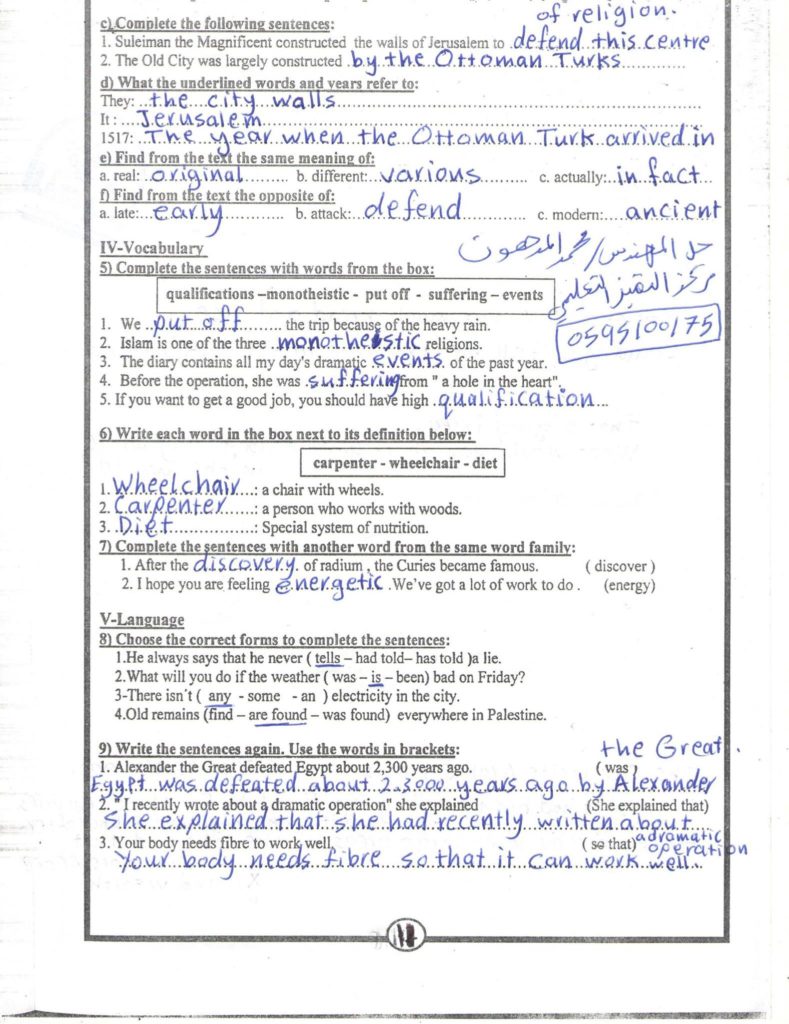 of religion.
c) Complete the following sentences:
1. Suleiman the Magnificent constructed the walls of Jerusalem to defend this centre
2. The Old City was largely constructed .by the Ottoman Turks............
d) What the underlined words and years refer to:
They: ..the city walls..............................
It : ...Jerusalem..............................
1517: ..The year when the Ottoman Turk arrived in
e) Find from the text the same meaning of:
a. real: .original......... b. different: ..various.......... c. actually: ..in fact...
f) Find from the text the opposite of:
a. late:...early............ b. attack: ...defend............ c. modern: .....ancient
IV-Vocabulary
حل المهندس/محمد المدهون
5) Complete the sentences with words from the box:
مركز التميز التعليمي
qualifications –monotheistic - put off - suffering – events
0595100175
1. We ..put off......... the trip because of the heavy rain.
2. Islam is one of the three .monotheistic religions.
3. The diary contains all my day's dramatic .events. of the past year.
4. Before the operation, she was .suffering from " a hole in the heart".
5. If you want to get a good job, you should have high .qualification...
6) Write each word in the box next to its definition below:
carpenter - wheelchair - diet
1. Wheelchair...: a chair with wheels.
2. Carpenter......: a person who works with woods.
3. .Diet...............: Special system of nutrition.
7) Complete the sentences with another word from the same word family:
1. After the discovery. of radium , the Curies became famous. ( discover )
2. I hope you are feeling energetic .We've got a lot of work to do . (energy)
V-Language
8) Choose the correct forms to complete the sentences:
1.He always says that he never ( tells – had told– has told )a lie.
2.What will you do if the weather ( was – is – been) bad on Friday?
3-There isn't ( any - some - an ) electricity in the city.
4.Old remains (find – are found – was found) everywhere in Palestine.
9) Write the sentences again. Use the words in brackets: the Great.
1. Alexander the Great defeated Egypt about 2,300 years ago. ( was )
Egypt was defeated about 2.3000 years ago by Alexander
2. " I recently wrote about a dramatic operation" she explained (She explained that)
She explained that she had recently written about....
a dramatic
3. Your body needs fibre to work well. ( so that) operation
Your body needs fibre so that it can work well..